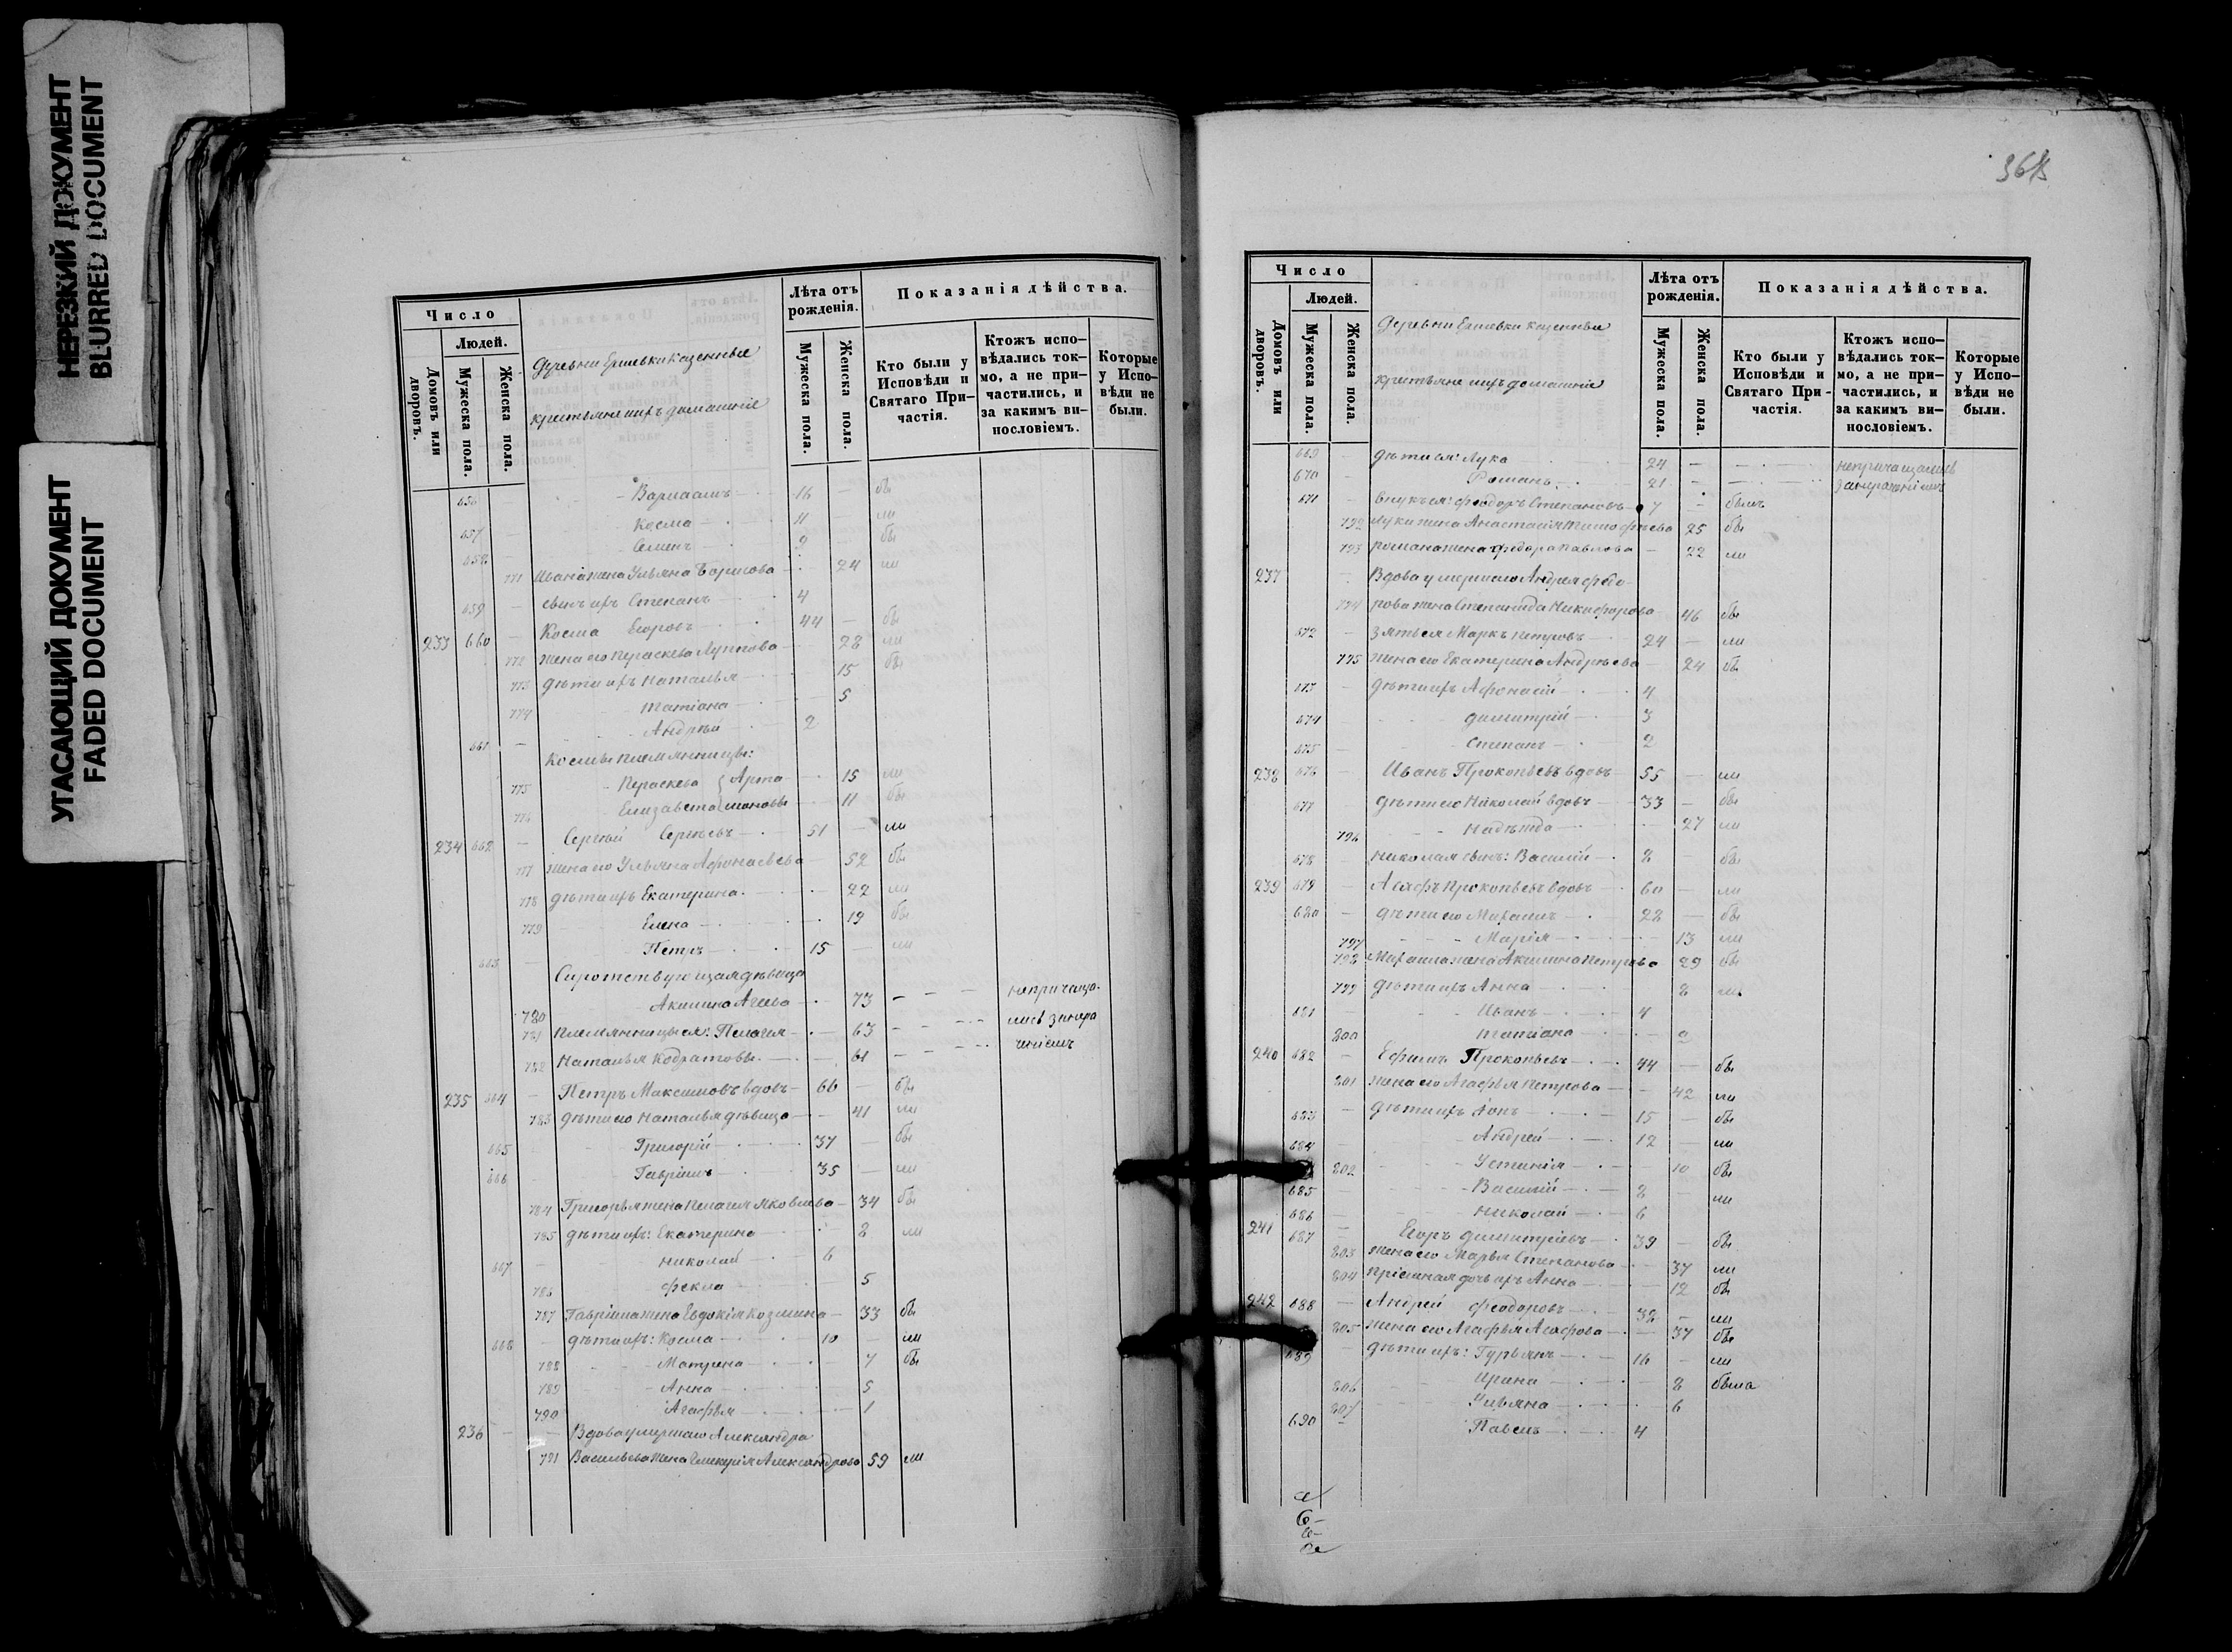 НЕРЕЗКИЙ ДОКУМЕНТ
BLURRED DOCUMENT
УГАСАЮЩИЙ ДОКУМЕНТ
FADED DOCUMENT
Число
Людей.
Домовъ или дворовъ.
Мужеска пола.
Женска пола.
Деревни казенные
крестьяне ихъ домашніе
Лѣта отъ рожденія.
Мужеска пола.
Женска пола.
Показанія дѣйства.
Кто были у Исповѣди и Святаго Причастія.
Ктожъ исповѣдались токмо, а не причастились, и за какимъ винословіемъ.
Которые у Исповѣди не были.
656 Варлаамъ 16 бы
657 Косма 11 ли
658 Семенъ 9 бы
771 Ивана жена Ульяна Борисова 24 ли
659 сынъ ихъ Степанъ 4
233 660 Косма Егоровъ 44 бы
772 жена его Пераскева Луппова 28 ли
773 дѣти ихъ Наталья 15 бы
774 Татіана 5
661 Андрей 2
Космы племянницы:
775 Пераскева } Арта- 15 ли
776 Елизавета } моновы 11 бы
234 662 Сергѣй Сергѣевъ 51 ли
777 жена его Ульяна Афонасьева 52 бы
778 дѣти ихъ Екатерина 22 ли
779 Елена 19 бы
663 Петръ 15 ли
Сиротствующая дѣвица
780 Акилина Агева 73 не прича ща-
781 племянницы ея: Пелагея 63 лись за нера
782 Наталья Кодратовы 61 чніемъ
235 664 Петръ Максимовъ вдовъ 66 бы
783 дѣти его Наталья дѣвица 41 ли
665 Григорій 37 бы
666 Гавріилъ 35 ли
784 Григорья жена Пелагея Яковлева 34 бы
785 дѣти ихъ: Екатерина 8 ли
667 Николай 6
786 Фекла 5
787 Гавріила жена Евдокія Козмина 33 бы
668 дѣти ихъ: Косма 10 ли
788 Матрена 7 бы
789 Анна 5
790 Агафья 1
236 Вдова умершаго Александра
791 Васильева жена Гликерія Александрова 59 ли
Число
Людей.
Домовъ или дворовъ.
Мужеска пола.
Женска пола.
Деревни казенные
крестьяне ихъ домашніе
Лѣта отъ рожденія.
Мужеска пола.
Женска пола.
Показанія дѣйства.
Кто были у Исповѣди и Святаго Причастія.
Ктожъ исповѣдались токмо, а не причастились, и за какимъ винословіемъ.
Которые у Исповѣди не были.
669 дѣти ея: Лука 24 не причащались
670 Романъ 21
671 внукъ ея: Феодоръ Степановъ 7 былъ
792 Луки жена Анастасія Тимофѣева 25 бы
793 Романа жена Федора Павлова 22 ли
237 Вдова умершаго Андрея Федо-
794 рова жена Степанида Никифорова 46 бы
672 зять ея Маркъ Петровъ 24 ли
795 жена его Екатерина Андрѣева 24 бы
673 дѣти ихъ Афонасій 4
674 Димитрій 3
675 Степанъ 2
238 676 Иванъ Прокопьевъ вдовъ 55 ли
677 дѣти его Николай вдовъ 33 бы
796 Надѣжда 27 ли
678 Николая сынъ: Василій 8 бы
239 679 Асафъ Прокопьевъ вдовъ 60 ли
680 дѣти его Михаилъ 28 бы
797 Марія 13 ли
798 Михаила жена Акилина Петрова 29 бы
799 дѣти ихъ Анна 8 ли
681 Иванъ 4
800 Татіана 2
240 682 Ефимъ Прокопьевъ 44 бы
801 жена его Агафья Петрова 42 ли
683 дѣти ихъ Іонъ 15 бы
684 Андрей 12 ли
802 Устинія 10 бы
685 Василій 8 ли
686 Николай 6
241 687 Егоръ Димитріевъ 39 бы
803 жена его Марья Степанова 37 ли
804 Пріемная дочь ихъ Анна 12 бы
242 688 Андрей Феодоровъ 38 ли
805 жена его Агафья Агафова 37 бы
689 дѣти ихъ: Гурьянъ 16 ли
806 Ирина 8 была
807 Ульяна 6
690 Павелъ 4